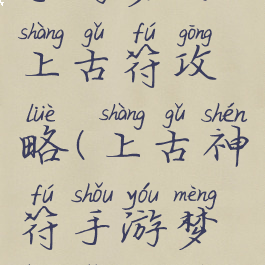 shàng gǔ fú gōng
上古符攻
lüè shàng gǔ shén
略(上古神
fú shǒu yóu mèng
符手游梦